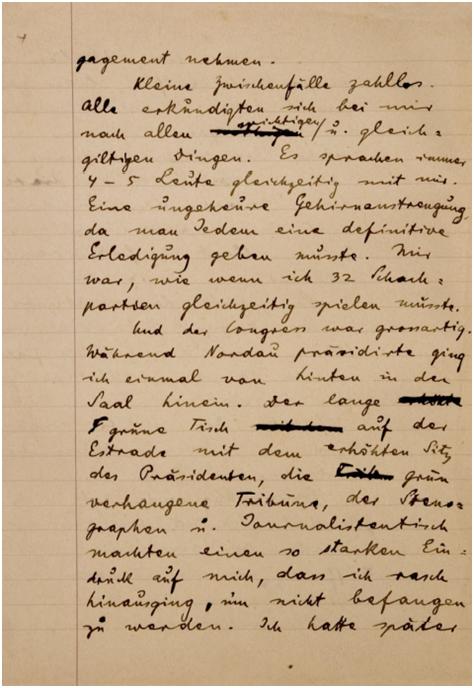 gagement nehmen.
Kleine Zwischenfälle zahllos.
Alle erkundigten sich bei mir
wichtigen
nach allen u. gleich=
giltigen Dingen. Es sprachen immer
4-5 Leute gleichzeitig mit mir.
Eine ungeheure Gehirnanstrengung,
da man Jedem eine definitive
Erledigung geben musste. Mir
war, wie wenn ich 32 Schach-
partien gleichzeitig spielen müsste.
Und der Congress war grossartig.
Während Nordau präsidirte ging
ich einmal von hinten in den
Saal hinein. Der lange
grüne Tisch auf der
Estrade mit dem erhöhten Sitz
des Präsidenten, die grün
verhangene Tribüne, der Steno=
graphen u. Journalistentisch
machten einen so starken Ein=
druck auf mich, dass ich rasch
hinausging, um nicht befangen
zu werden. Ich hatte später